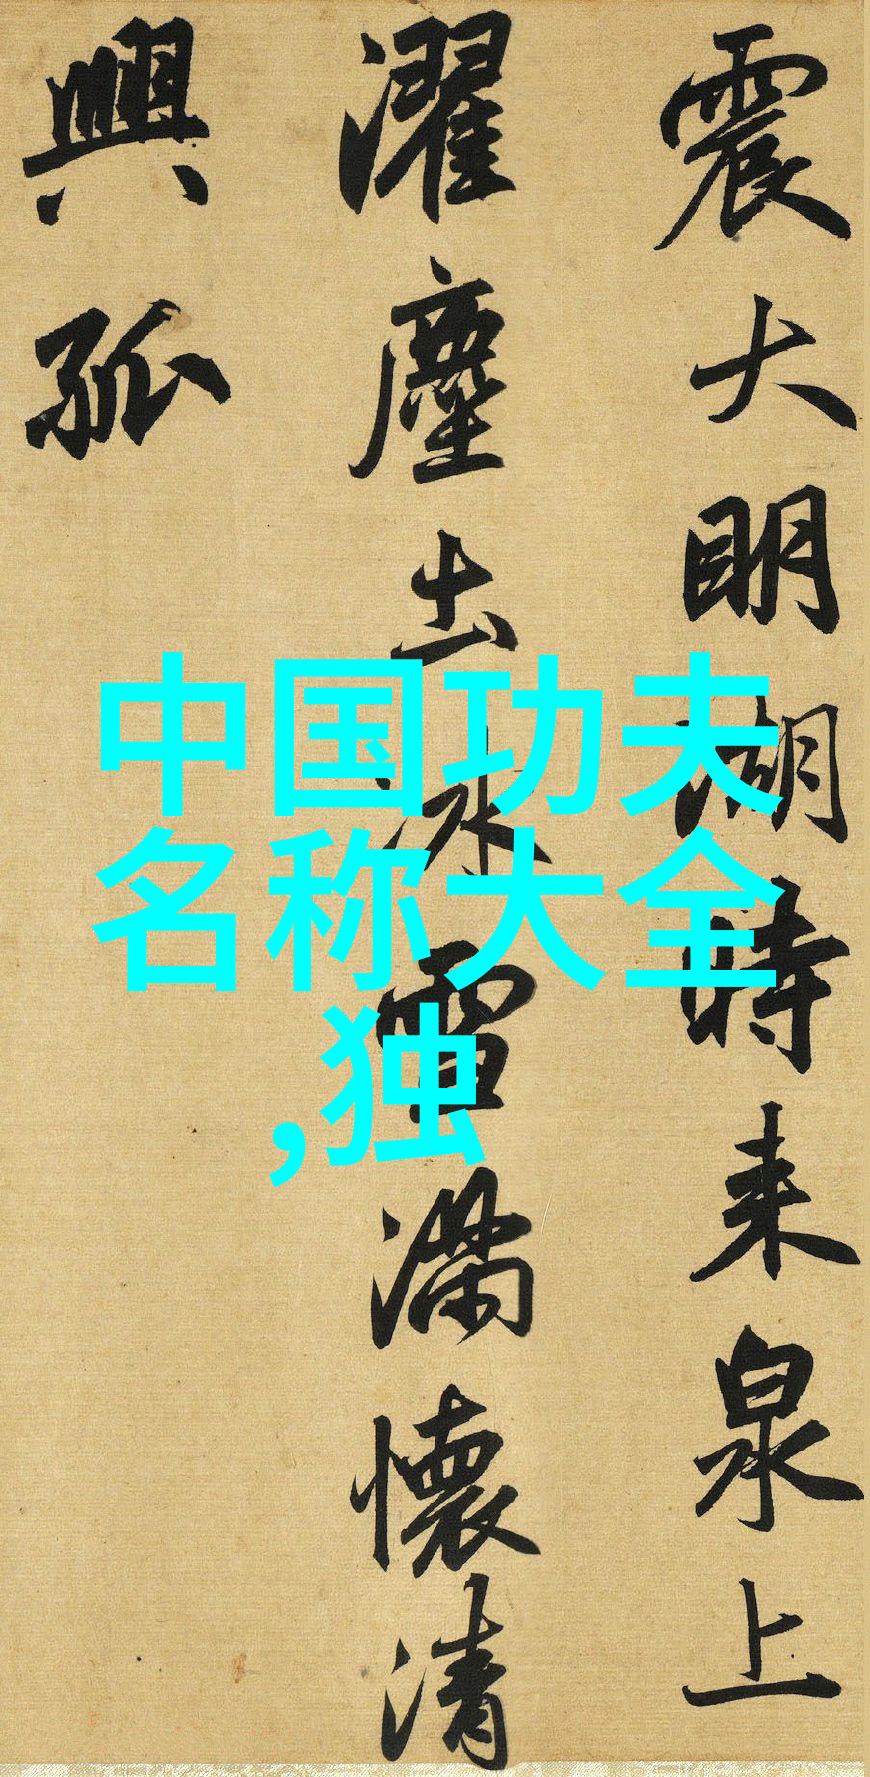 震大明湖時来泉上
濯塵土冰雪滿懷清
興孤
中国功夫
名称大全
,独